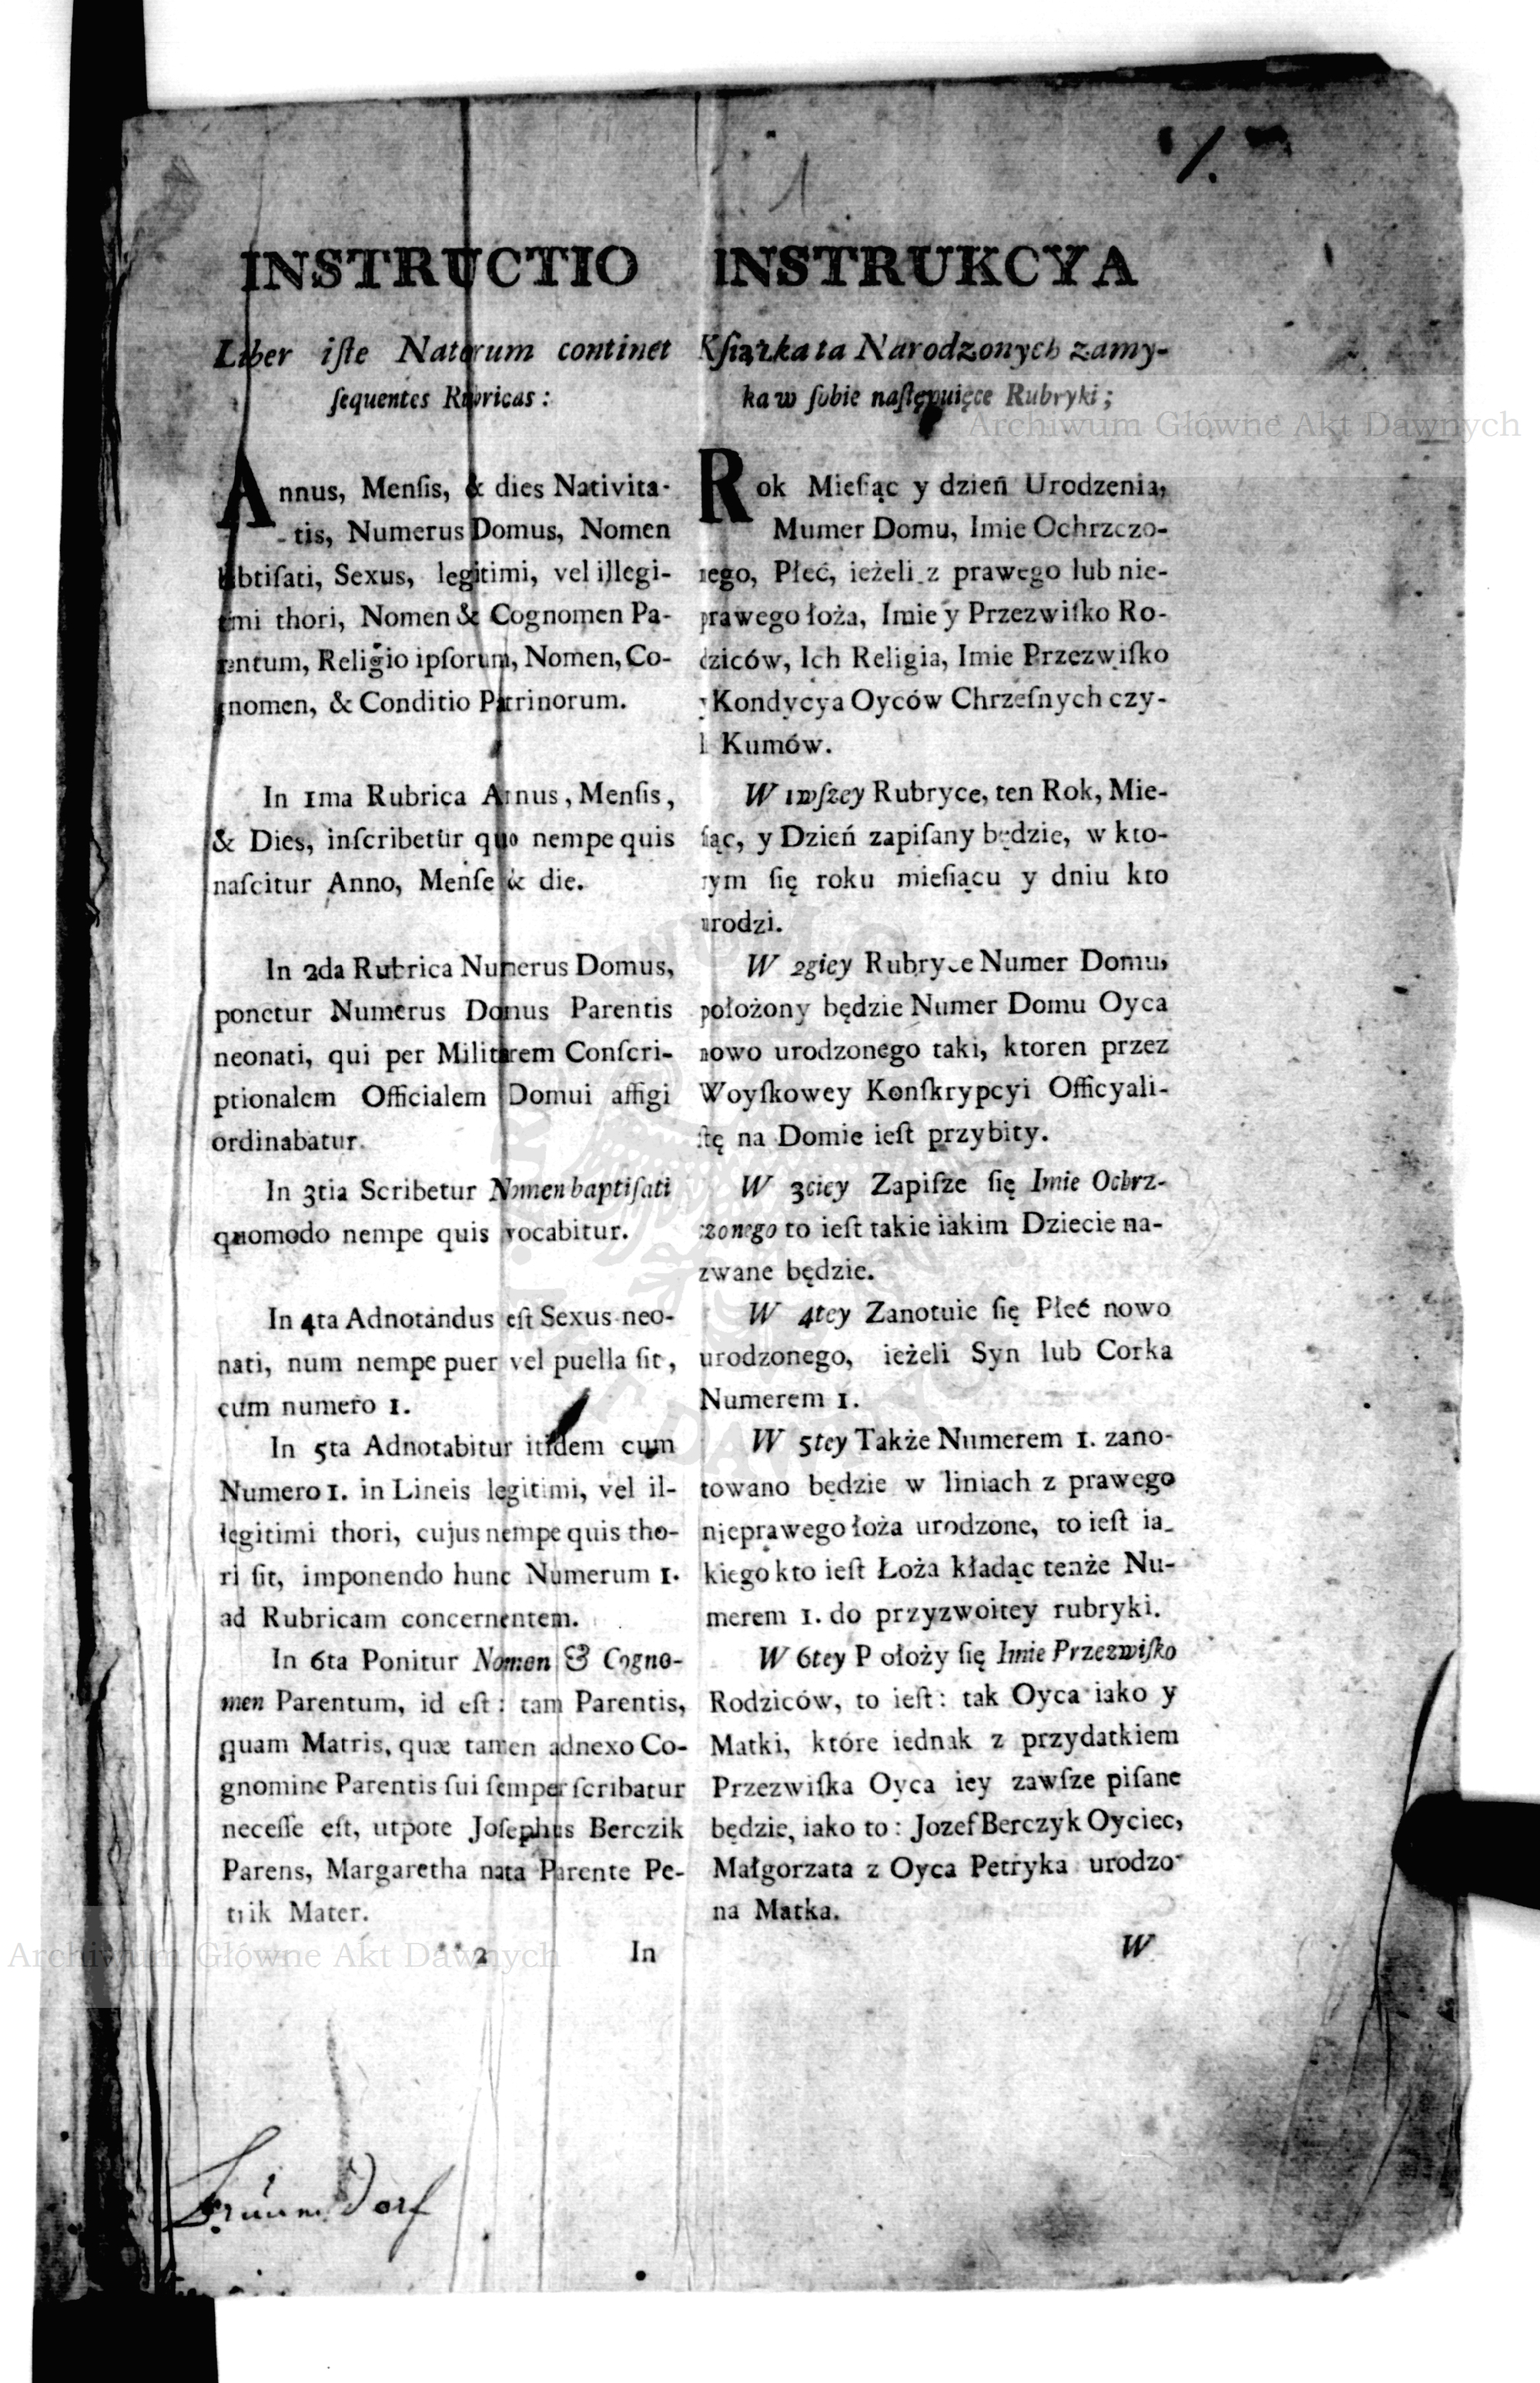 1
INSTRUCTIO
Liber iſte Natorum continet
ſequentes Rubricas:
Annus, Menſis, & dies Nativita-
tis, Numerus Domus, Nomen
babtiſati, Sexus, legitimi, vel illegi-
timi thori, Nomen & Cognomen Pa-
rentum, Religio ipſorum, Nomen, Co-
gnomen, & Conditio Patrinorum.
In 1ma Rubrica Annus, Menſis,
& Dies, inſcribetur quo nempe quis
naſcitur Anno, Menſe & die.
In 2da Rubrica Numerus Domus,
ponetur Numerus Domus Parentis
neonati, qui per Militarem Conſcri-
ptionalem Officialem Domui affigi
ordinabatur.
In 3tia Scribetur Nomen baptiſati
quomodo nempe quis vocabitur.
In 4ta Adnotandus eſt Sexus neo-
nati, num nempe puer vel puella ſit,
cum numero 1.
In 5ta Adnotabitur itidem cum
Numero 1. in Lineis legitimi, vel il-
legitimi thori, cujus nempe quis tho-
ri ſit, imponendo hunc Numerum 1.
ad Rubricam concernentem.
In 6ta Ponitur Nomen & Cogno-
men Parentum, id eſt: tam Parentis,
quam Matris, quæ tamen adnexo Co-
gnomine Parentis ſui ſemper ſcribatur
neceſſe eſt, utpote Joſephus Berczik
Parens, Margaretha nata Parente Pe-
trik Mater.
2 In
INSTRUKCYA
Kſiążka ta Narodzonych zamy-
ka w ſobie naſtępuięce Rubryki;
Rok Mieſiąc y dzień Urodzenia,
Mumer Domu, Imie Ochrzczo-
nego, Płeć, ieżeli z prawego lub nie-
prawego łoża, Imie y Przezwiſko Ro-
dziców, Ich Religia, Imie Przezwiſko
y Kondycya Oyców Chrzeſnych czy-
li Kumów.
W 1wſzey Rubryce, ten Rok, Mie-
ſiąc, y Dzień zapiſany będzie, w kto-
rym ſię roku mieſiącu y dniu kto
urodzi.
W 2giey Rubryce Numer Domu,
położony będzie Numer Domu Oyca
nowo urodzonego taki, ktoren przez
Woyſkowey Konſkrypcyi Officyali-
ſtę na Domie ieſt przybity.
W 3ciey Zapiſze ſię Imie Ochrz-
czonego to ieſt takie iakim Dziecie na-
zwane będzie.
W 4tey Zanotuie ſię Płeć nowo
urodzonego, ieżeli Syn lub Corka
Numerem 1.
W 5tey Także Numerem 1. zano-
towano będzie w liniach z prawego
nieprawego łoża urodzone, to ieſt ia-
kiego kto ieſt Łoża kładąc tenże Nu-
merem 1. do przyzwoitey rubryki.
W 6tey P ołoży ſię Imie Przezwiſko
Rodziców, to ieſt: tak Oyca iako y
Matki, które iednak z przydatkiem
Przezwiſka Oyca iey zawſze piſane
będzie, iako to: Jozef Berczyk Oyciec,
Małgorzata z Oyca Petryka urodzo-
na Matka.
W
Archiwum Główne Akt Dawnych
Archiwum Główne Akt Dawnych